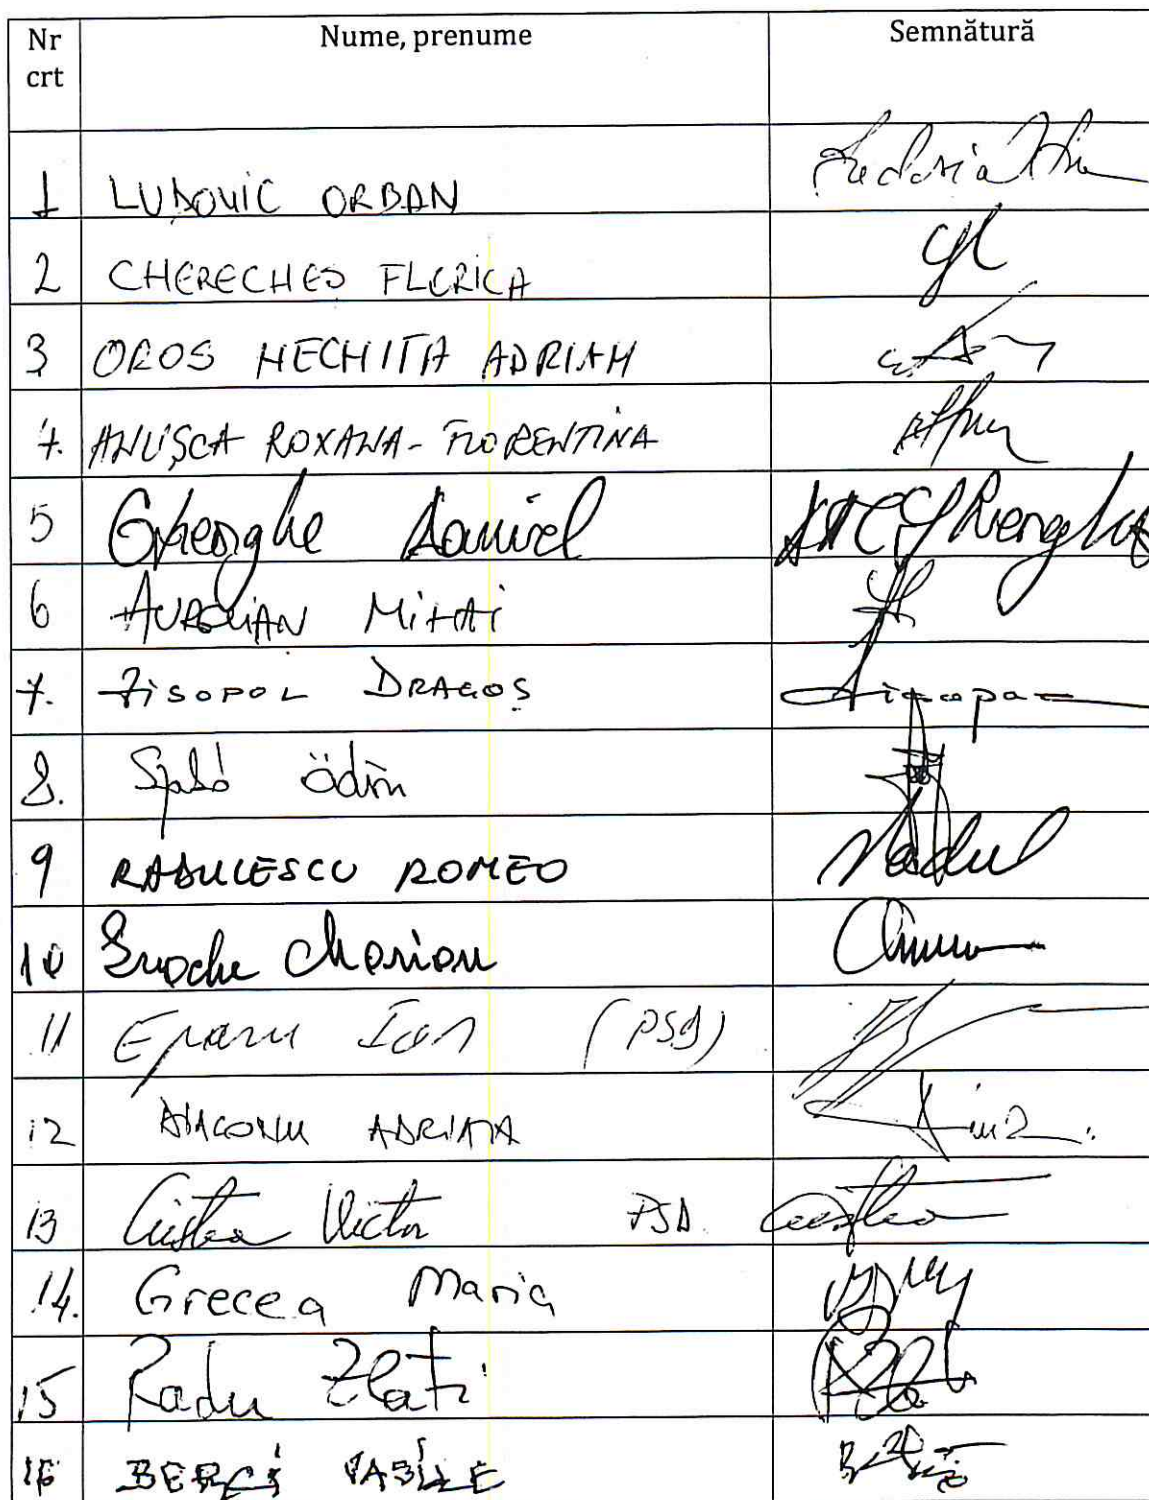 Nr crt Nume, prenume Semnătură
1 LUDOVIC ORBAN
2 CHERECHES FLORICA
3 OROS NECHITA ADRIAN
4. ANUȘCA ROXANA-FLORENTINA
5 Gheorghe Daniel Gheorghe
6 AURELIAN MIHAI
7. ZISOPOL DRAGOȘ
8. Szabó Ödön
9 RADULESCU ROMEO
10 Enache Marian
11 Eparu Ion (PSD)
12 DIACONU ADRIANA
13 Cristea Victor PSD
14. Grecea Maria
15 Radu Zlati
16 BERCI VASILE